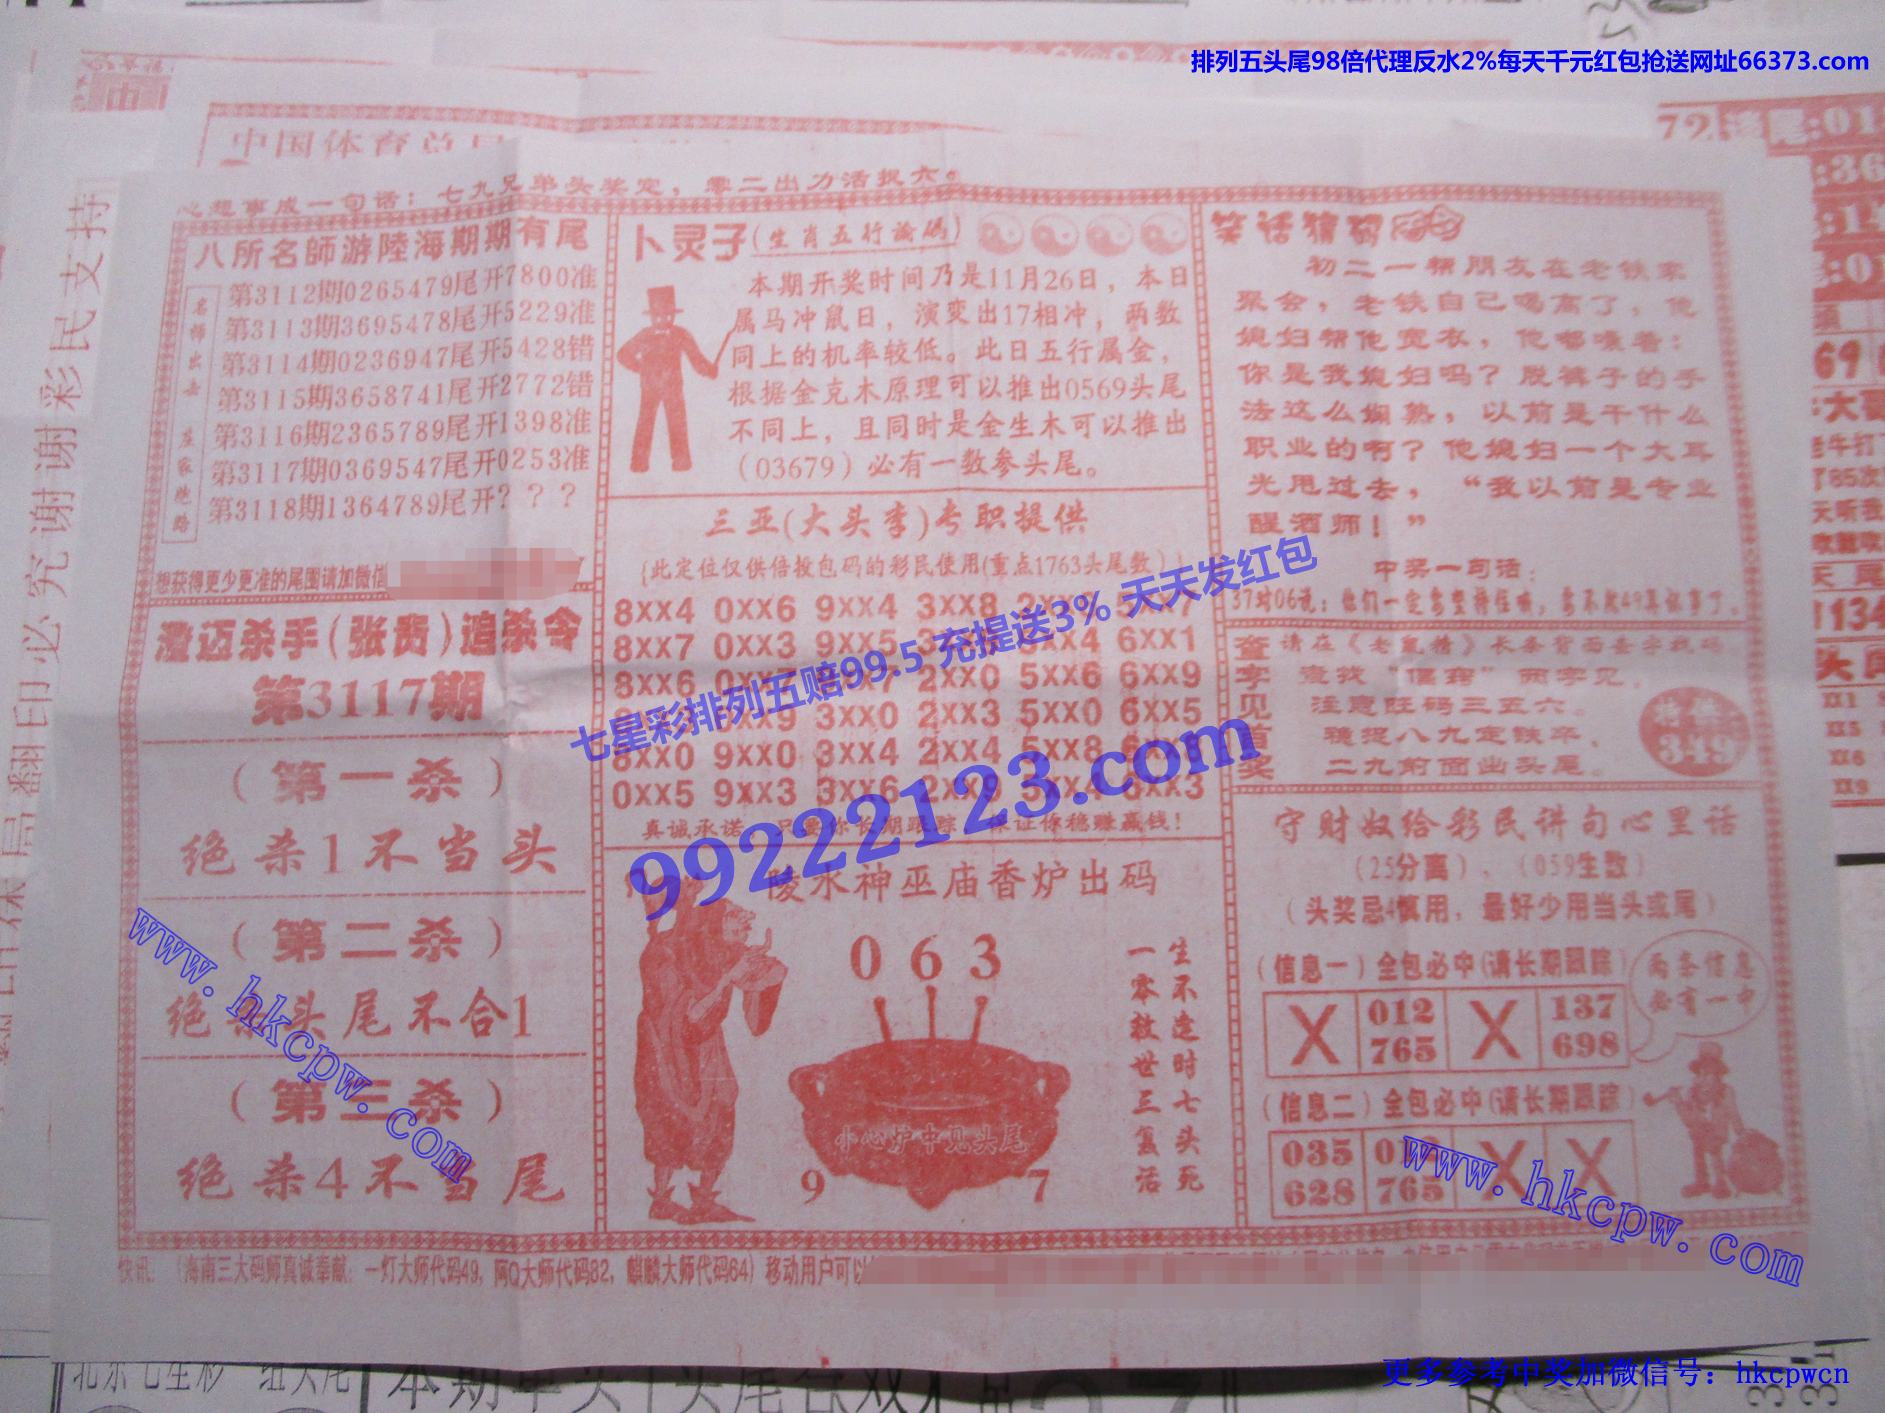 排列五头尾98倍代理反水2%每天千元红包抢送网址66373.com
中国体育总局
心想事成一句话：七九兄弟头奖定，零二出力活捉六。
八所名師游陸海期期有尾
名师出击 庄家跑路
第3112期0265479尾开7800准
第3113期3695478尾开5229准
第3114期0236947尾开5428错
第3115期3658741尾开2772错
第3116期2365789尾开1398准
第3117期0369547尾开0253准
第3118期1364789尾开？？？
想获得更少更准的尾围请加微信
澄迈杀手(张贵)追杀令
第3117期
(第一杀)
绝杀1不当头
(第二杀)
绝杀头尾不合1
(第三杀)
绝杀4不当尾
卜灵子(生肖五行论码)
本期开奖时间乃是11月26日，本日
属马冲鼠日，演变出17相冲，两数
同上的机率较低。此日五行属金，
根据金克木原理可以推出0569头尾
不同上，且同时是金生木可以推出
（03679）必有一数参头尾。
三亚(大头李)专职提供
(此定位仅供倍投包码的彩民使用(重点1763头尾数))
8XX4 0XX6 9XX4 3XX8
8XX7 0XX3 9XX5 6XX1
8XX6 2XX0 5XX6 6XX9
3XX0 2XX3 5XX0 6XX5
8XX0 9XX0 3XX4 2XX4 5XX8
0XX5 9XX3 3XX6 2XX9 5XX4 6XX3
真诚承诺 只要你长期跟踪 保证你稳赚赢钱！
陵水神巫庙香炉出码
063
生不逢时七头死
一零救世三复活
小心炉中见头尾
9 7
笑话猜码
初二一帮朋友在老铁家
聚会，老铁自己喝高了，他
媳妇帮他宽衣，他嘟囔着：
你是我媳妇吗？脱裤子的手
法这么娴熟，以前是干什么
职业的啊？他媳妇一个大耳
光甩过去，“我以前是专业
醒酒师！”
中奖一句话：
37对06说：他们一定
查字见首奖
注意旺码三五六。
稳捉八九定铁卒，
二九前面出头尾。
特供
349
守财奴给彩民讲句心里话
(25分离)、(059生数)
(头奖忌4慎用，最好少用当头或尾)
(信息一)全包必中(请长期跟踪)
X 012 765 X 137 698
两条信息
必有一中
(信息二)全包必中(请长期跟踪)
035 628 765 X X
快讯：(海南三大码师真诚奉献：一灯大师代码49, 阿Q大师代码82, 麒麟大师代码64) 移动用户可以
局翻印必究谢谢彩民支持
七星彩排列五赔99.5 充提送3% 天天发红包
99222123.com
www.hkcpw.com
www.hkcpw.com
更多参考中奖加微信号：hkcpwcn